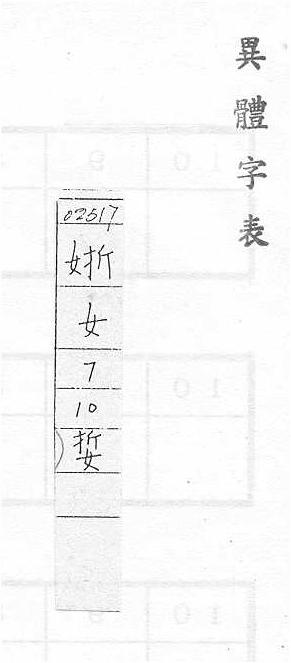 異體字表
02517
⿰女折
女
7
10
娎